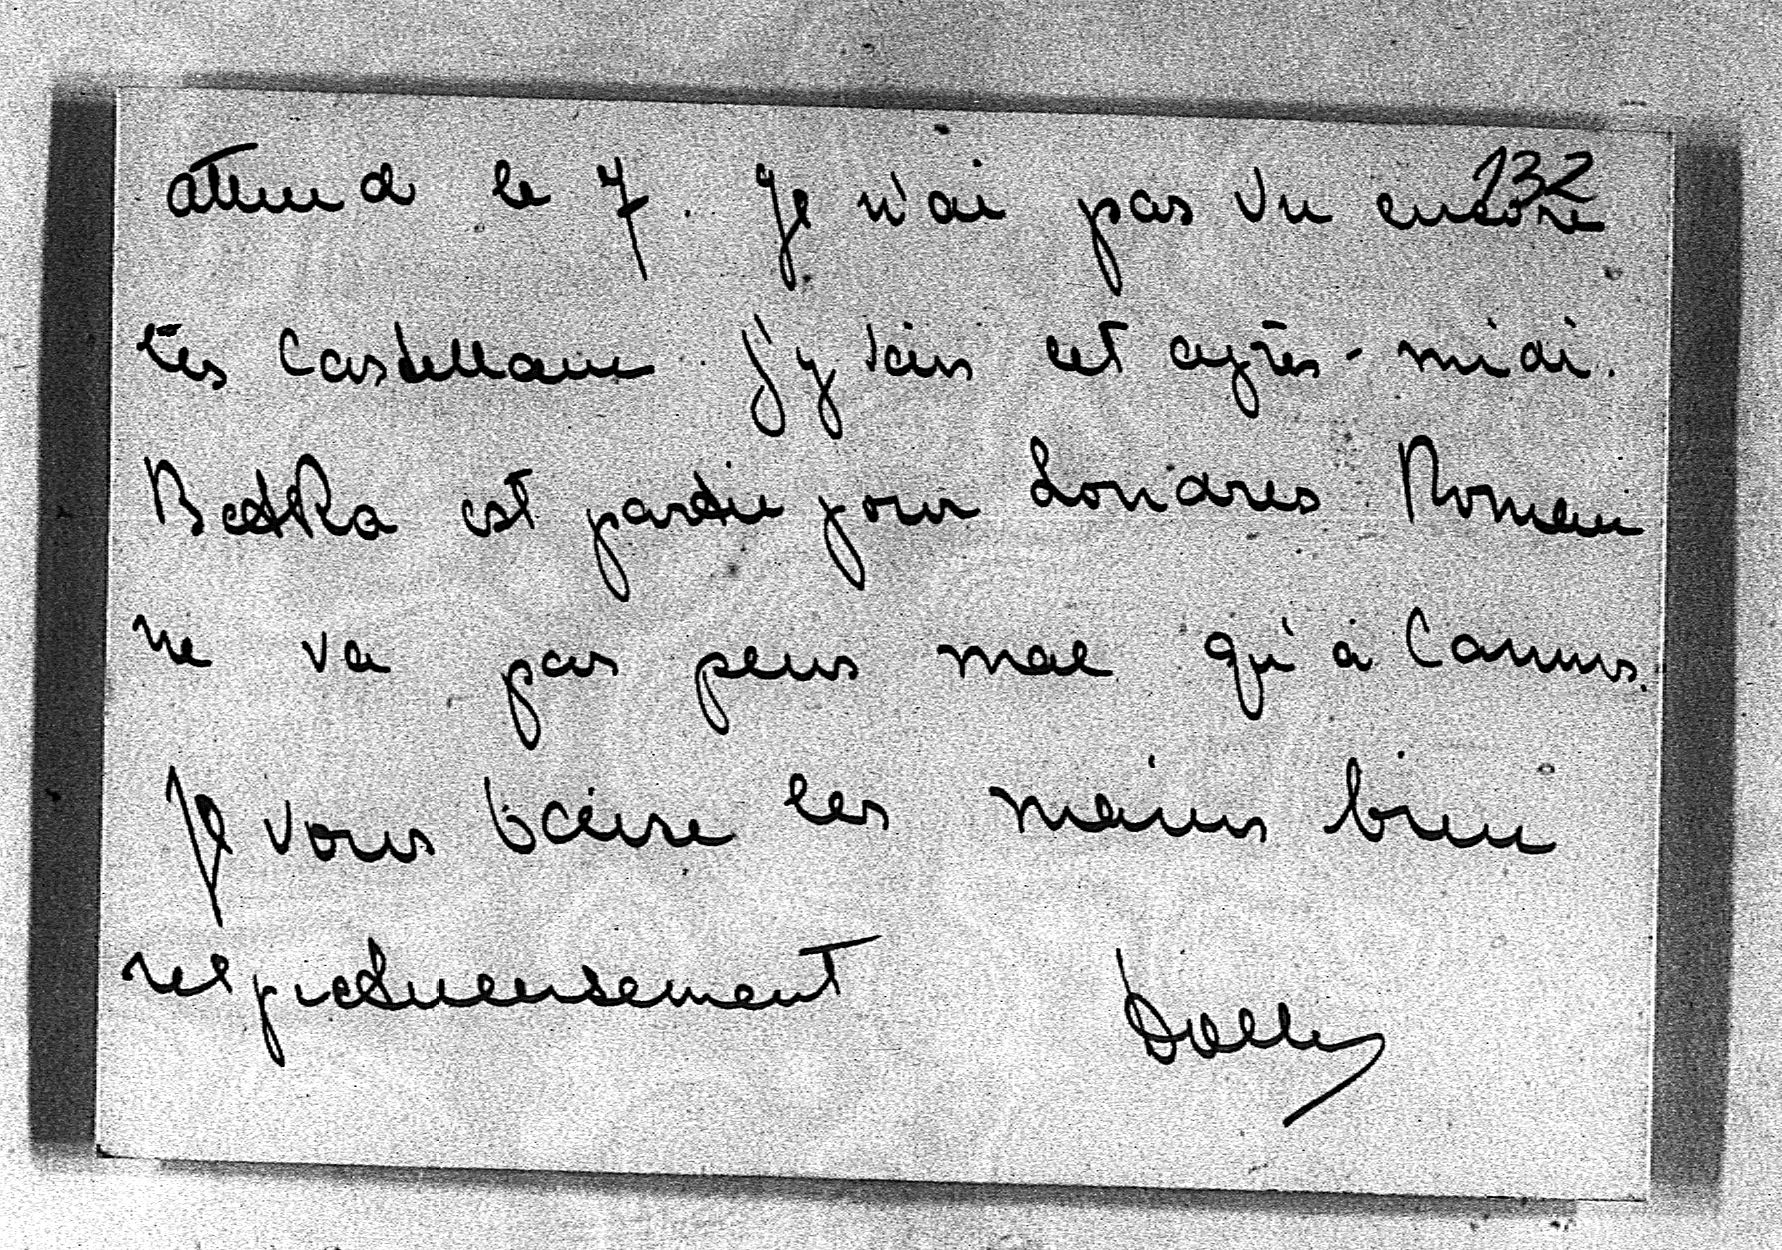 132
attend le 7. Je n'ai pas vu encore
les Castellane j'y vais cet après-midi.
est partie pour Londres Romain
ne va pas plus mal qu'à Cannes.
Je vous baise les mains bien
respectueusement Dolly